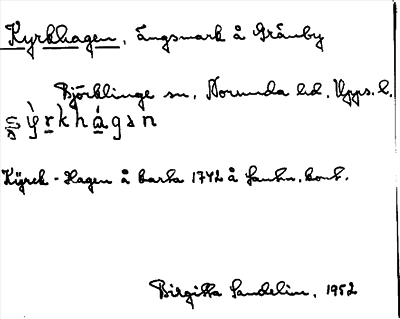 Kyrkhagen, Ängsmark å Gränby
Björklinge sn, Norunda hd, Upps. l.
Kÿrck-Hagen å karta 1742 å Lantm. kont.
Birgitta Sandelin, 1952